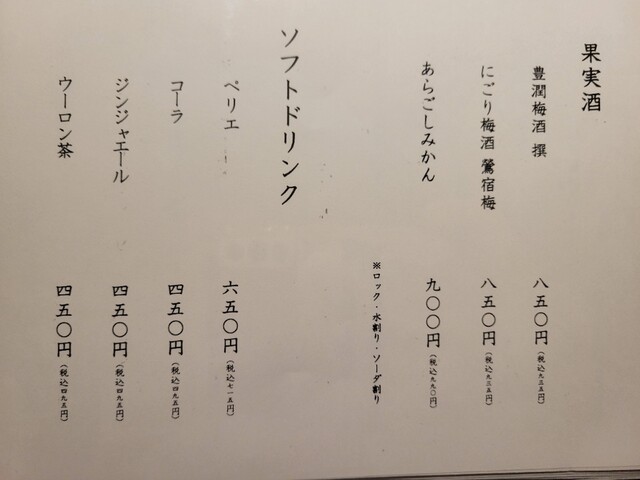 果実酒
豊潤梅酒 撰 八五〇円(税込九三五円)
にごり梅酒 鶯宿梅 八五〇円(税込九三五円)
あらごしみかん 九〇〇円(税込九九〇円)
※ロック・水割り・ソーダ割り
ソフトドリンク
ペリエ 六五〇円(税込七一五円)
コーラ 四五〇円(税込四九五円)
ジンジャエール 四五〇円(税込四九五円)
ウーロン茶 四五〇円(税込四九五円)